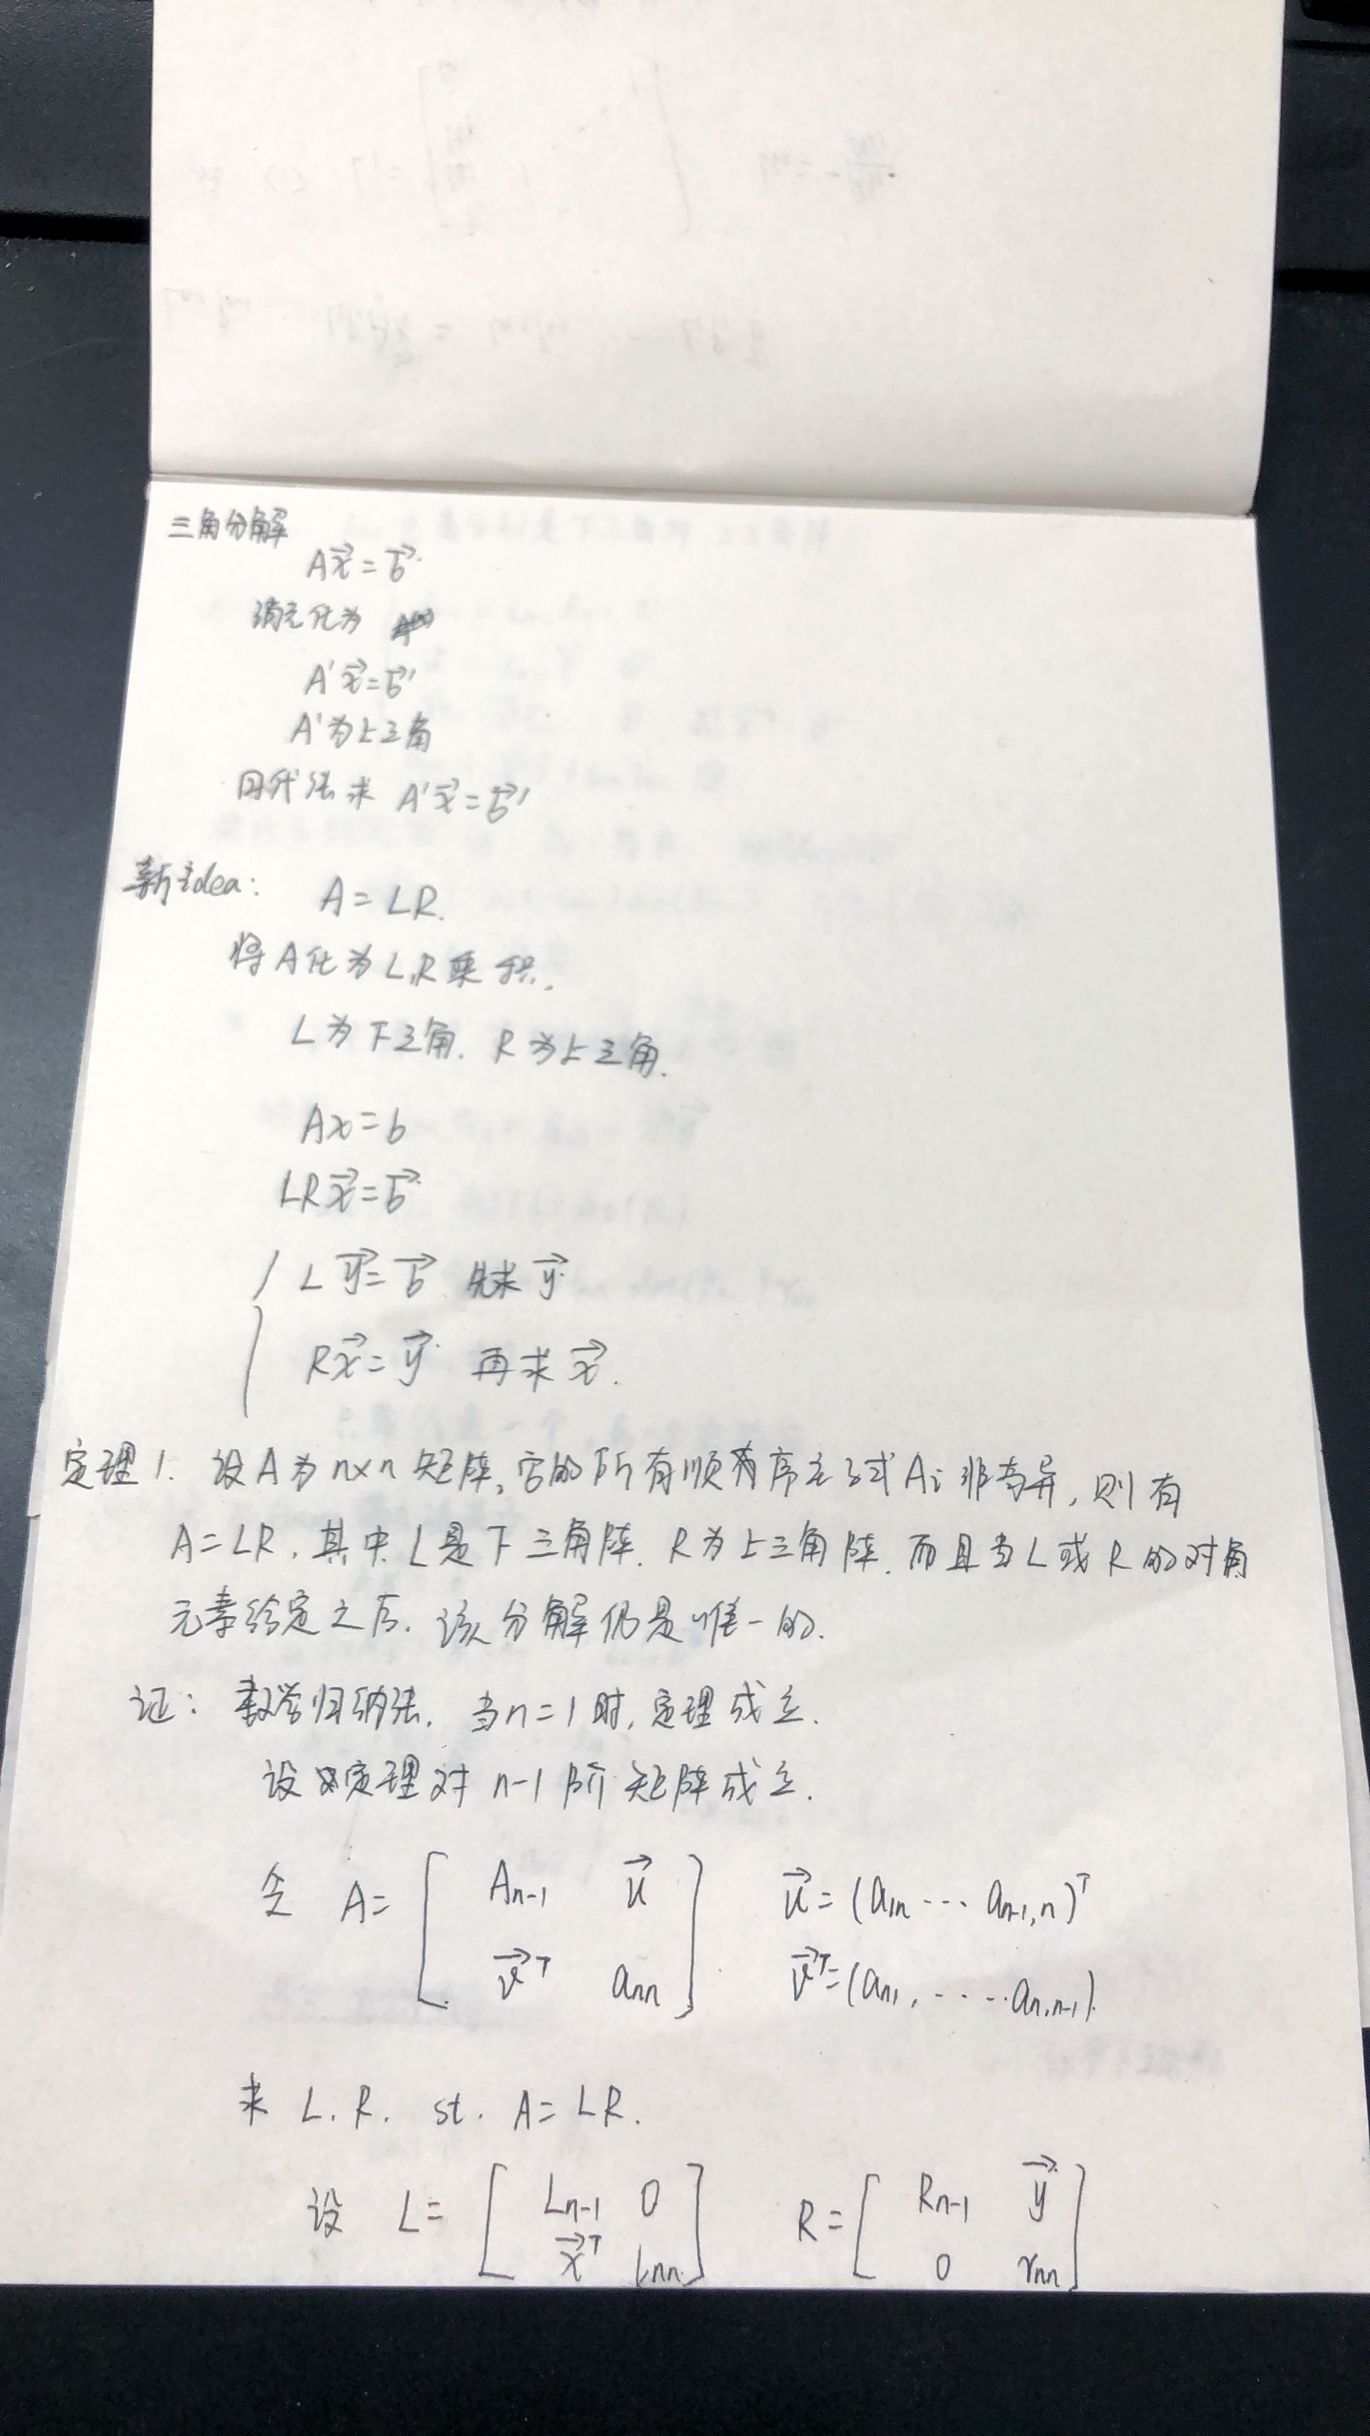 三角分解
A\vec{x}=\vec{b}
消元化为
A'\vec{x}=\vec{b}'
A'为上三角
回代法求 A'\vec{x}=\vec{b}'
新idea: A=LR.
将A化为L,R乘积.
L为下三角. R为上三角.
Ax=b
LR\vec{x}=\vec{b}
L\vec{y}=\vec{b} 先求\vec{y}
R\vec{x}=\vec{y} 再求\vec{x}.
定理1. 设A为n×n矩阵,它的所有顺序主子式Ai非奇异,则有
A=LR,其中L是下三角阵. R为上三角阵.而且当L或R的对角
元素给定之后.该分解仍是唯一的.
证: 数学归纳法. 当n=1时,定理成立.
设定理对n-1阶矩阵成立.
令 A=[A_{n-1} \vec{u} ; \vec{v}^T a_{nn}] \vec{u}=(a_{1n}···a_{n-1,n})^T
\vec{v}^T=(a_{n1},·····a_{n,n-1}).
求 L.R. st. A=LR.
设 L=[L_{n-1} 0 ; \vec{x}^T l_{nn}] R=[R_{n-1} \vec{y} ; 0 r_{nn}]